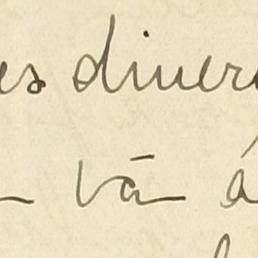 es diver
vã á